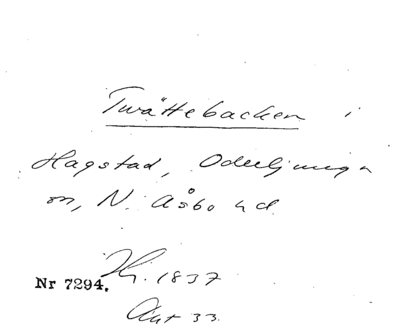 Tvättebacken i
Hagstad, Oderljunga
sn, N. Åsbo hd.
Nr 7294. Hj. 1837
Akt 33.